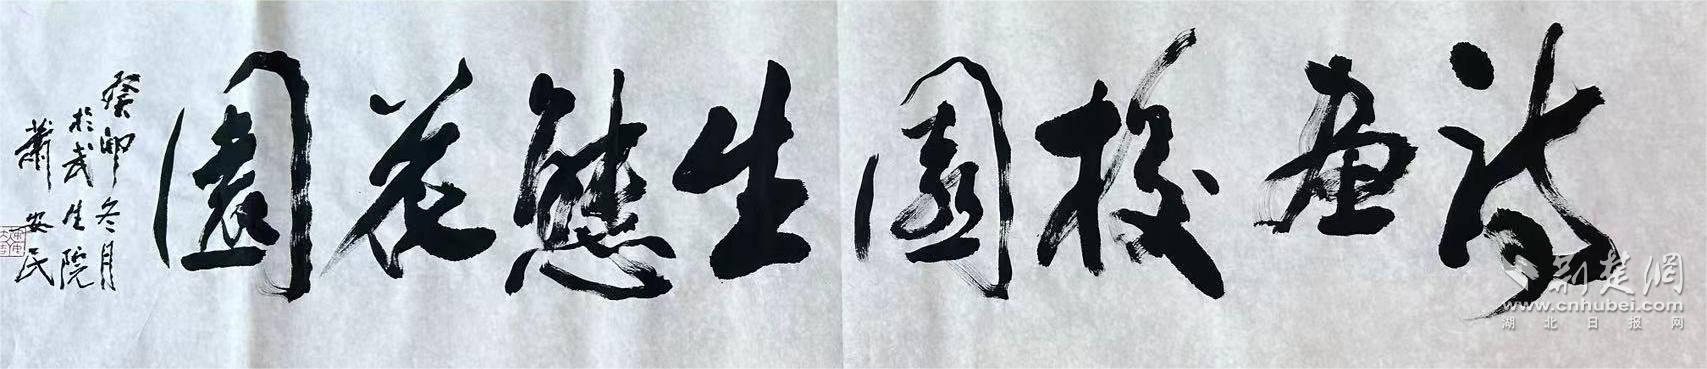 詩画校園生態花園
癸卯冬月
於武生院
蕭安民
荆楚網
www.cnhubei.com
湖北日报网